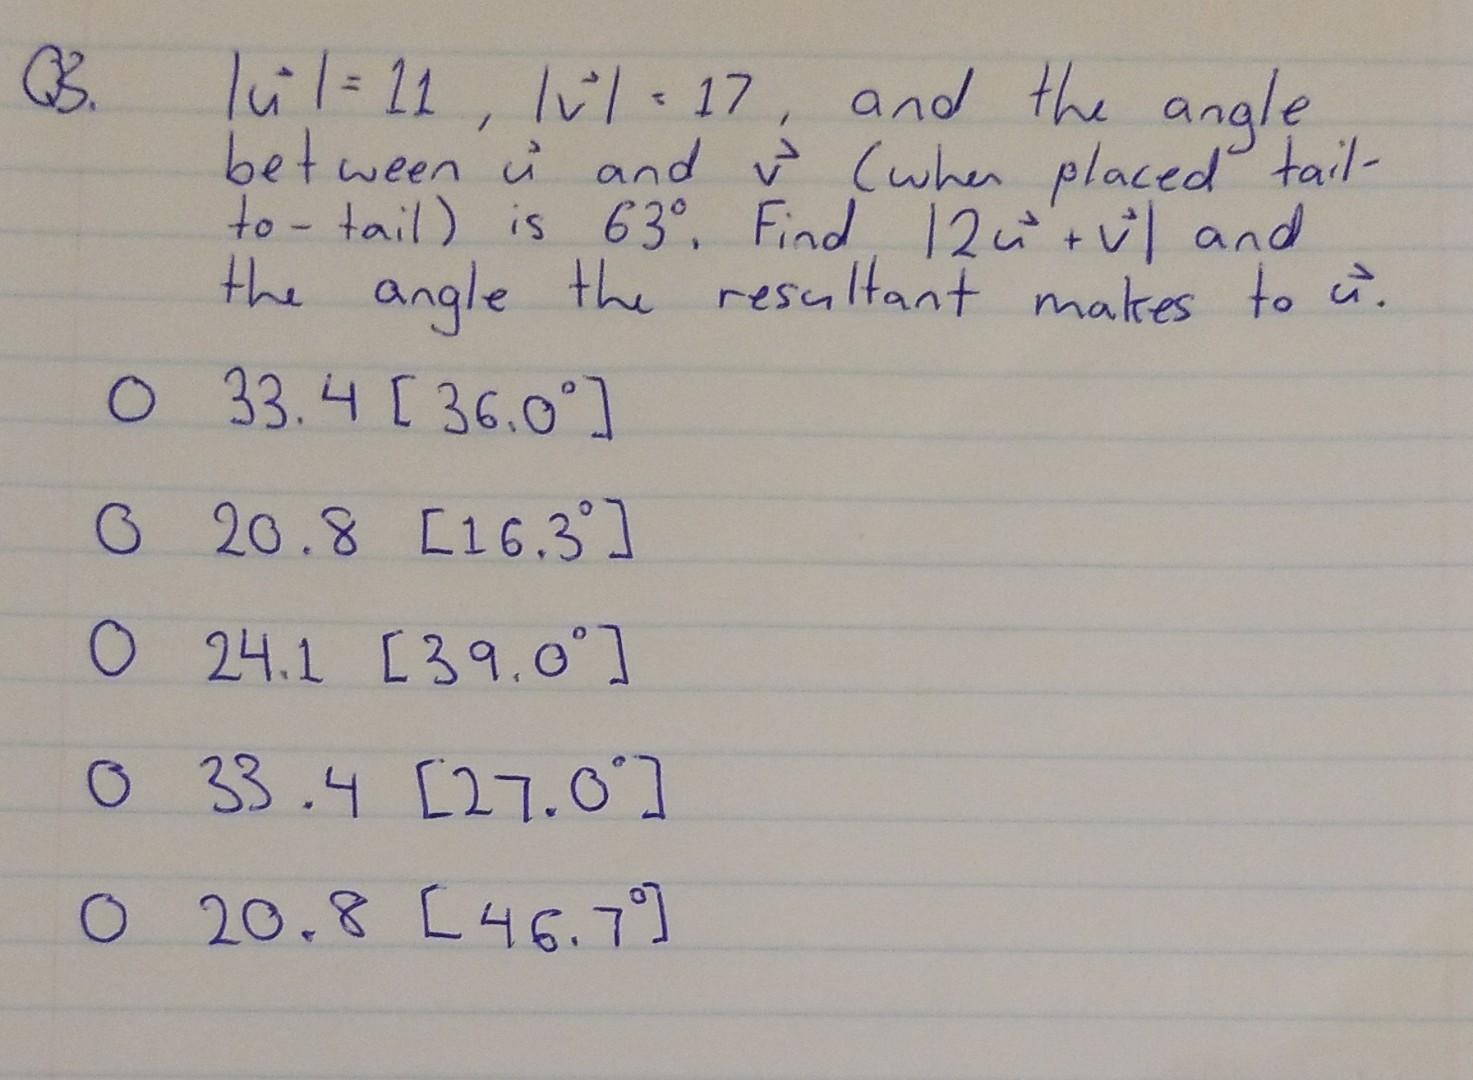 Q3. |u⃗| = 11, |v⃗| = 17, and the angle
between u⃗ and v⃗ (when placed tail-
to-tail) is 63°. Find |2u⃗ + v⃗| and
the angle the resultant makes to u⃗.
O 33.4 [36.0°]
O 20.8 [16.3°]
O 24.1 [39.0°]
O 33.4 [27.0°]
O 20.8 [46.7°]